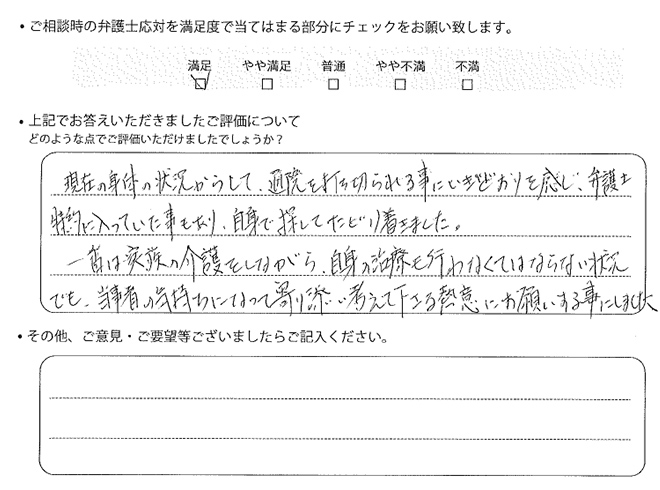 ・ご相談時の弁護士応対を満足度で当てはまる部分にチェックをお願い致します。
満足 やや満足 普通 やや不満 不満
・上記でお答えいただきましたご評価について
どのような点でご評価いただけましたでしょうか？
現在の身体の状況からして、通院を打ち切られる事にいきどおりを感じ、弁護士
特約に入っていた事もあり、自身で探してたどり着きました。
一番は家族の介護をしながら、自身の治療も行わなくてはならない状況
でも、当事者の気持ちになって寄り添い考えて下さる熱意にお願いする事にしました
・その他、ご意見・ご要望等ございましたらご記入ください。